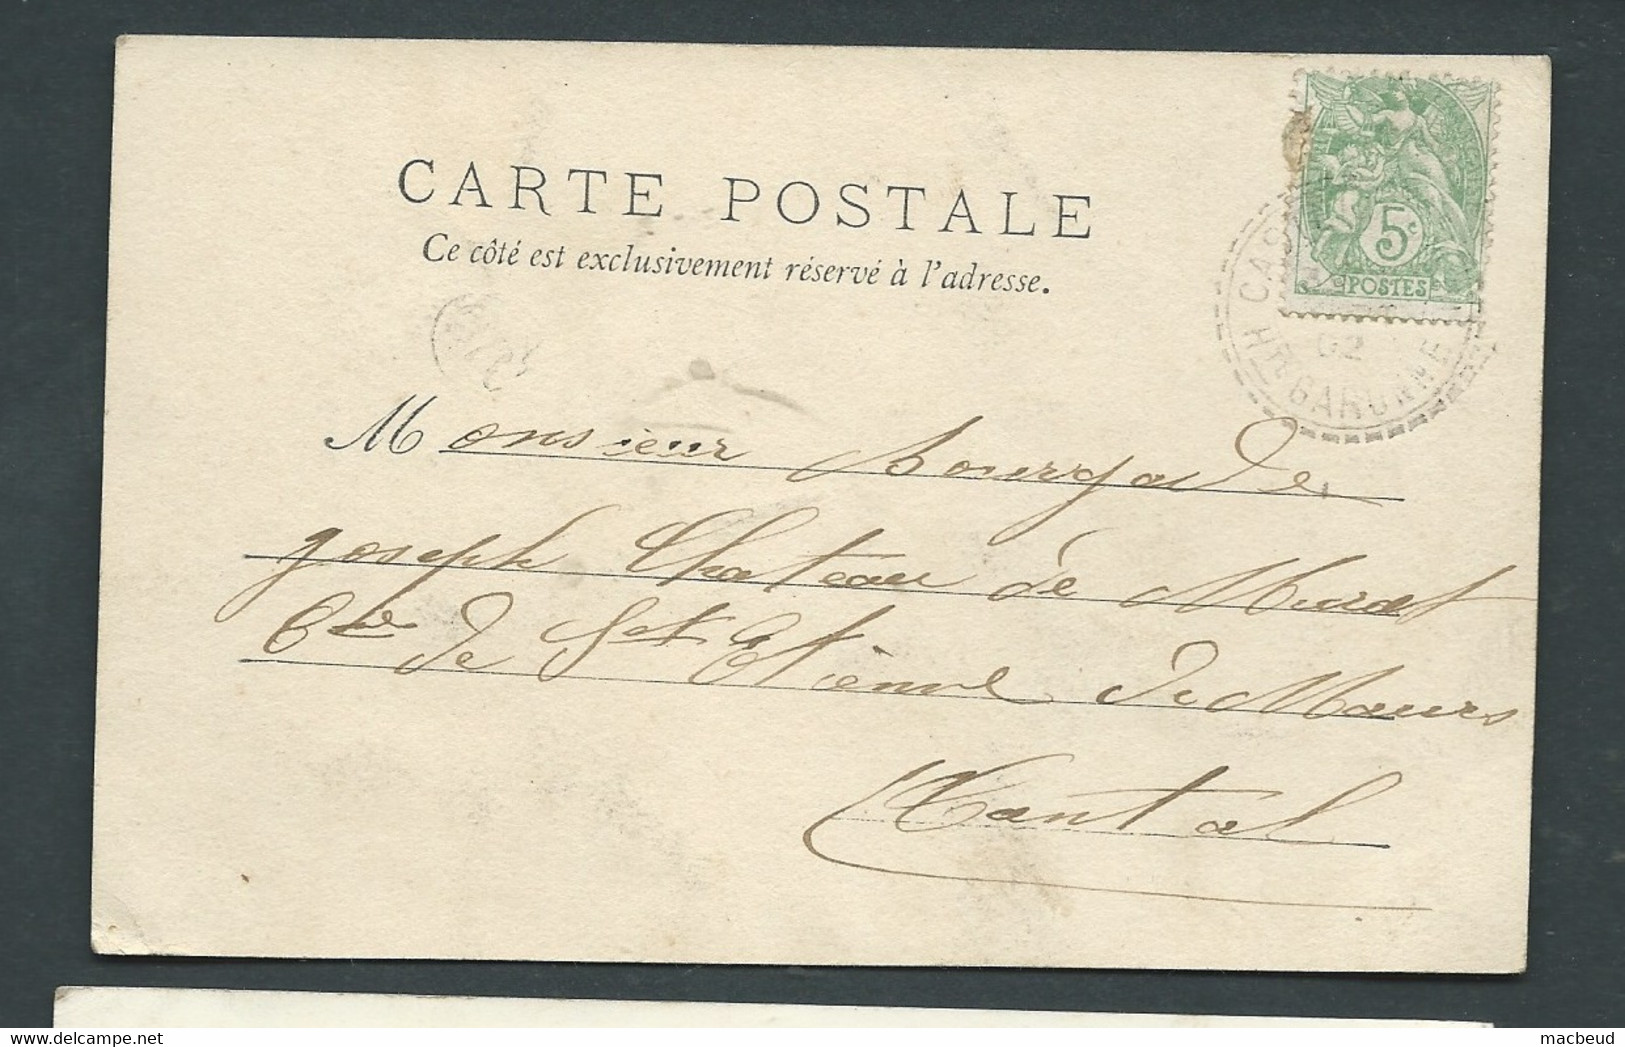 CARTE POSTALE
Ce côté est exclusivement réservé à l'adresse.
5c
POSTES
CAS
02
Hte GARONNE
Monsieur Bourgade
Joseph Chateau de Murat
Cne de St Etienne de Maurs
Cantal
macbeud